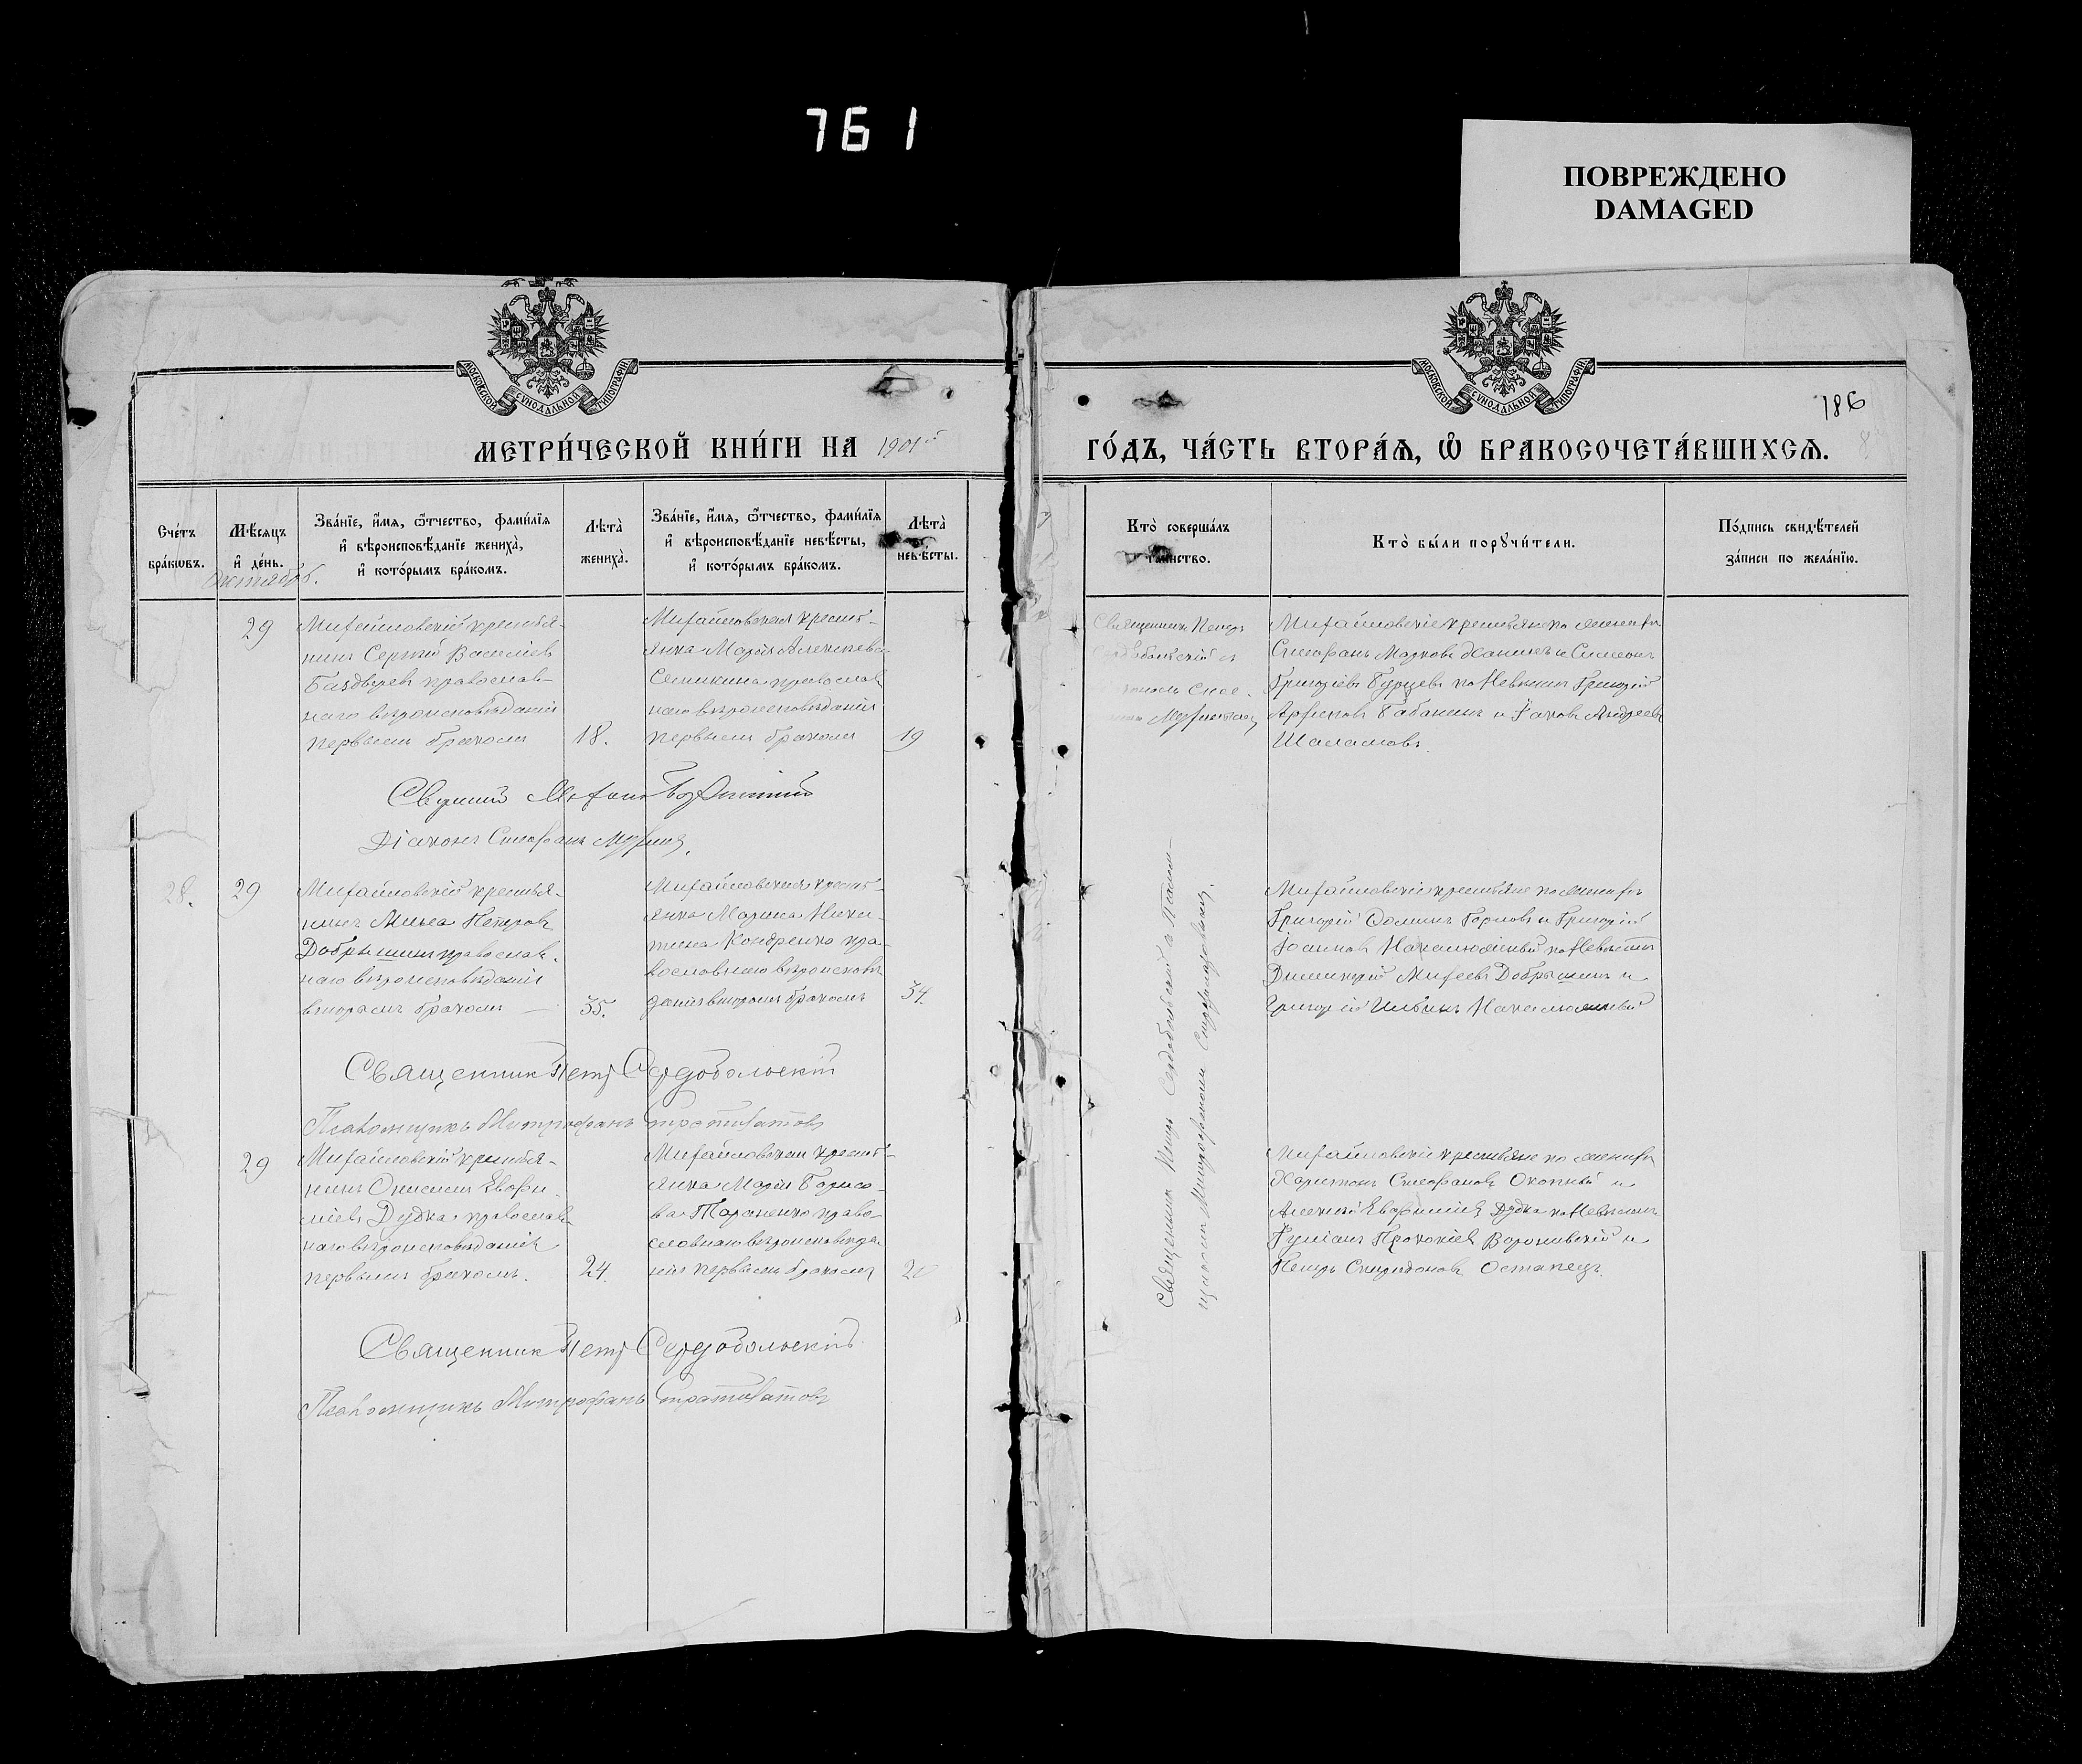 761
ПОВРЕЖДЕНО
DAMAGED
МОСКОВСКОЙ СѴНОДАЛЬНОЙ ТИПОГРАФІИ
МОСКОВСКОЙ СѴНОДАЛЬНОЙ ТИПОГРАФІИ
186
МЕТРИ́ЧЕСКОЙ КНИ́ГИ НА 1901й
ГО́ДЪ, ЧА́СТЬ ВТОРА́Ѧ, Ѽ БРАКОСОЧЕТА́ВШИХСѦ.
Сче́тъ
бра́кѡвъ.
Мѣ́сѧцъ
и҆ де́нь.
Зва́нїе, и҆́мѧ, ѻ҆́тчество, фами́лїѧ
и҆ вѣроисповѣ́данїе жениха̀,
и҆ кото́рымъ бра́комъ.
Лѣта̀
жениха̀.
Зва́нїе, и҆́мѧ, ѻ҆́тчество, фами́лїѧ
и҆ вѣроисповѣ́данїе невѣ́сты,
и҆ кото́рымъ бра́комъ.
Лѣта̀
невѣ́сты.
Кто̀ соверша́лъ
та́инство.
Кто̀ бы́ли порꙋчи́тели.
По́дпись свидѣ́телей
за́писи по жела́нїю.
Октябрь.
29
Михайловскій крестья-
нинъ Сергій Василіевъ
православ-
наго вѣроисповѣданія
первымъ бракомъ
18.
Михайловская кресть-
янка Марія Алексѣева
Семикина православ
наго вѣроисповѣданія
первымъ бракомъ
19
Священникъ Петръ
Михайловскіе крестьяне по женихѣ
Стефанъ Марковъ Ханинъ и Симеонъ
Григоріевъ Бурцевъ по невѣстѣ Григорій
Архиповъ Бабанинъ и Іаковъ Андреевъ
Шаламовъ.
Діаконъ Стефанъ
28.
29
Михайловскій крестья-
нинъ Миѵа Петровъ
Добрышинъ православ-
наго вѣроисповѣданія
вторымъ бракомъ —
35.
Михайловская кресть-
янка Марина Ники-
тина Кондренко пра-
вославнаго вѣроисповѣ
данія вторымъ бракомъ
34.
Священникъ Петръ Сердобольскій и Псалом-
щикомъ Митрофаномъ Стратилатовымъ.
Михайловскіе крестьяне по женихѣ
Григорій Ѳоминъ Горловъ и Григорій
Іоанновъ по невѣстѣ
Димитрій Михеевъ Добрышинъ и
Григорій Ильинъ
Священникъ Петръ Сердобольскій
Псаломщикъ Митрофанъ Стратилатовъ
29
Михайловскій крестья-
нинъ Онисимъ Евфи-
міевъ Дудка православ-
наго вѣроисповѣданія
первымъ бракомъ.
24.
Михайловская кресть-
янка Марія Борисо-
ва Тараненко право-
славнаго вѣроисповѣда-
нія первымъ бракомъ
20
Михайловскіе крестьяне по женихѣ
Харитонъ Стефановъ Окопный и
Алексій Евфиміевъ Дудка по невѣстѣ
Іуліанъ Прокопіевъ Воронивскій и
Петръ Спиридоновъ Остапецъ.
Священникъ Петръ Сердобольскій
Псаломщикъ Митрофанъ Стратилатовъ